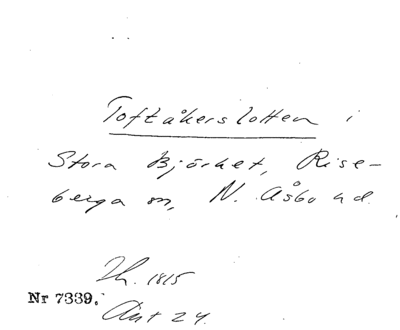 Toftåkerslotten i
Stora Björket, Rise-
berga sn, N. Åsbo hd.
Lh. 1815
Nr 7339.
Akt 24.